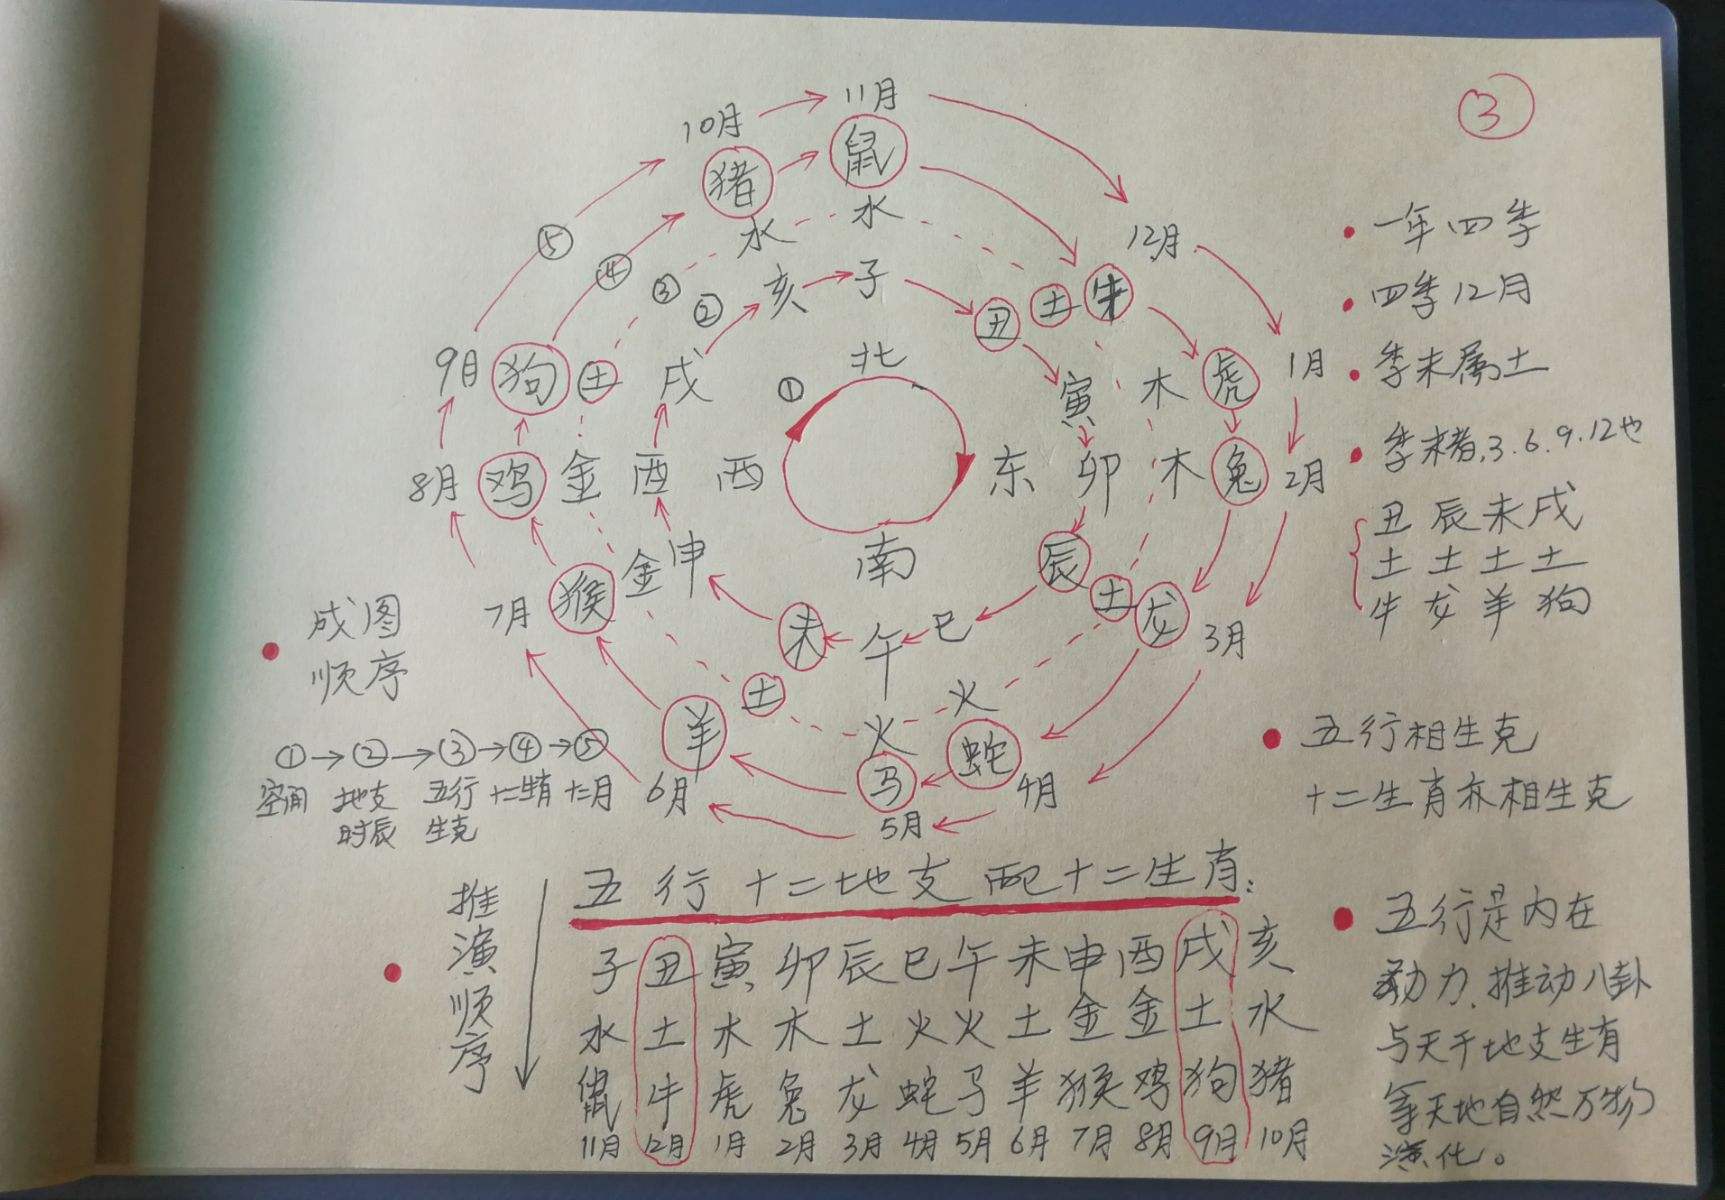 ③
11月
10月
鼠
猪
水
水
12月
⑤
④
③
②
亥
子
丑
土
牛
9月
狗
土
戌
①
北
寅
木
虎
1月
8月
鸡
金
酉
西
东
卯
木
兔
2月
南
7月
猴
金
申
辰
土
龙
3月
未
午
巳
土
火
火
羊
马
蛇
6月
5月
4月
一年四季
四季12月
季末属土
季末者,3.6.9.12也
丑辰未戌
土土土土
牛龙羊狗
成图
顺序
①→②→③→④→⑤
空间 地支 五行 十二生肖 十二月
时辰 生克
五行相生克
十二生肖亦相生克
五行十二地支配十二生肖:
推演顺序
子丑寅卯辰巳午未申酉戌亥
水土木木土火火土金金土水
鼠牛虎兔龙蛇马羊猴鸡狗猪
11月 12月 1月 2月 3月 4月 5月 6月 7月 8月 9月 10月
五行是内在
动力.推动八卦
与天干地支生肖
等天地自然万物
演化。